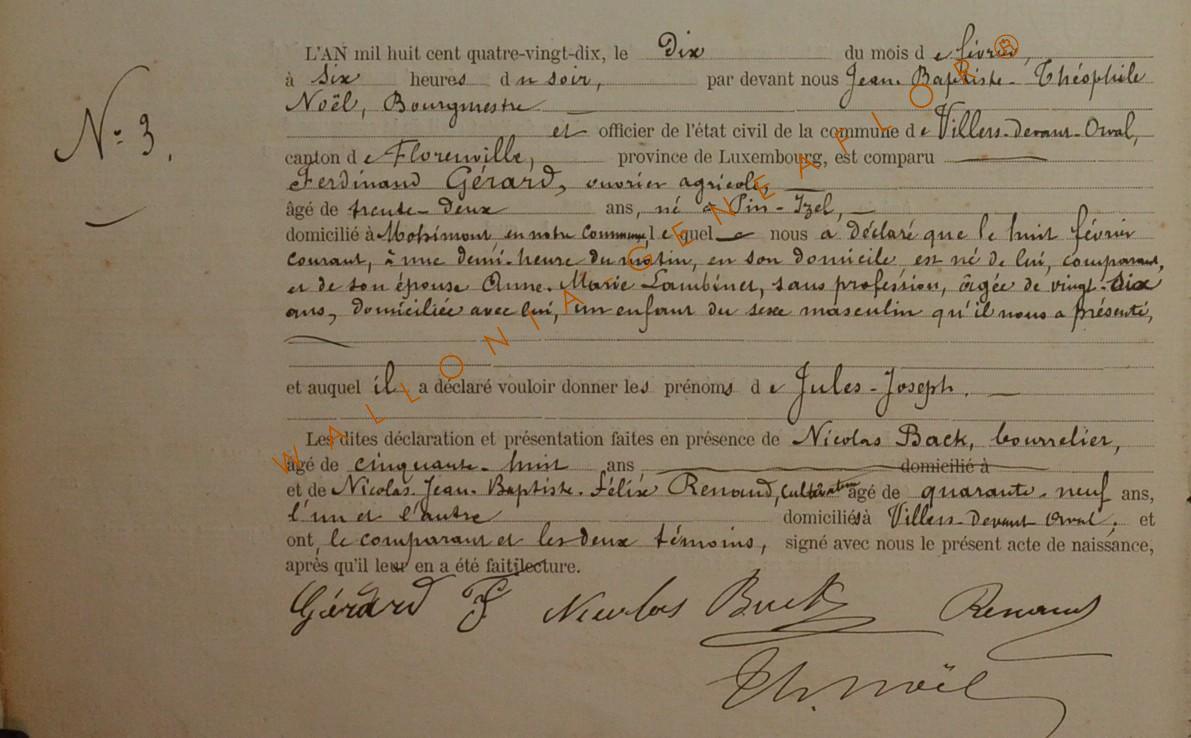 L'AN mil huit cent quatre-vingt-dix, le Dix du mois de février,
à six heures du soir, par devant nous Jean-Baptiste-Théophile
Noël, Bourgmestre
N° 3.
et officier de l'état civil de la commune de Villers-devant-Orval,
canton de Florenville, province de Luxembourg, est comparu
Ferdinand Gérard, ouvrier agricole,
âgé de trente-deux ans, né à Pin-Izel,
domicilié à Mohimont, en notre Commune, lequel nous a déclaré que le huit février
courant, à une demi-heure du matin, en son domicile, est né de lui, comparant,
et de son épouse Anne-Marie Lambinet, sans profession, âgée de vingt-dix
ans, domiciliée avec lui, un enfant du sexe masculin qu'il nous a présenté,
et auquel il a déclaré vouloir donner les prénoms de Jules-Joseph.
Les dites déclaration et présentation faites en présence de Nicolas Back, bourrelier,
âgé de cinquante-huit ans domicilié à
et de Nicolas-Jean-Baptiste-Félix Renaud, cultivateur âgé de quarante-neuf ans,
l'un et l'autre domiciliés à Villers-devant-Orval, et
ont, le comparant et les deux témoins, signé avec nous le présent acte de naissance,
après qu'il leur en a été fait lecture.
Gérard F Nicolas Back Renaud
Th. Noël
WALLONIA-GENEAFLOR®